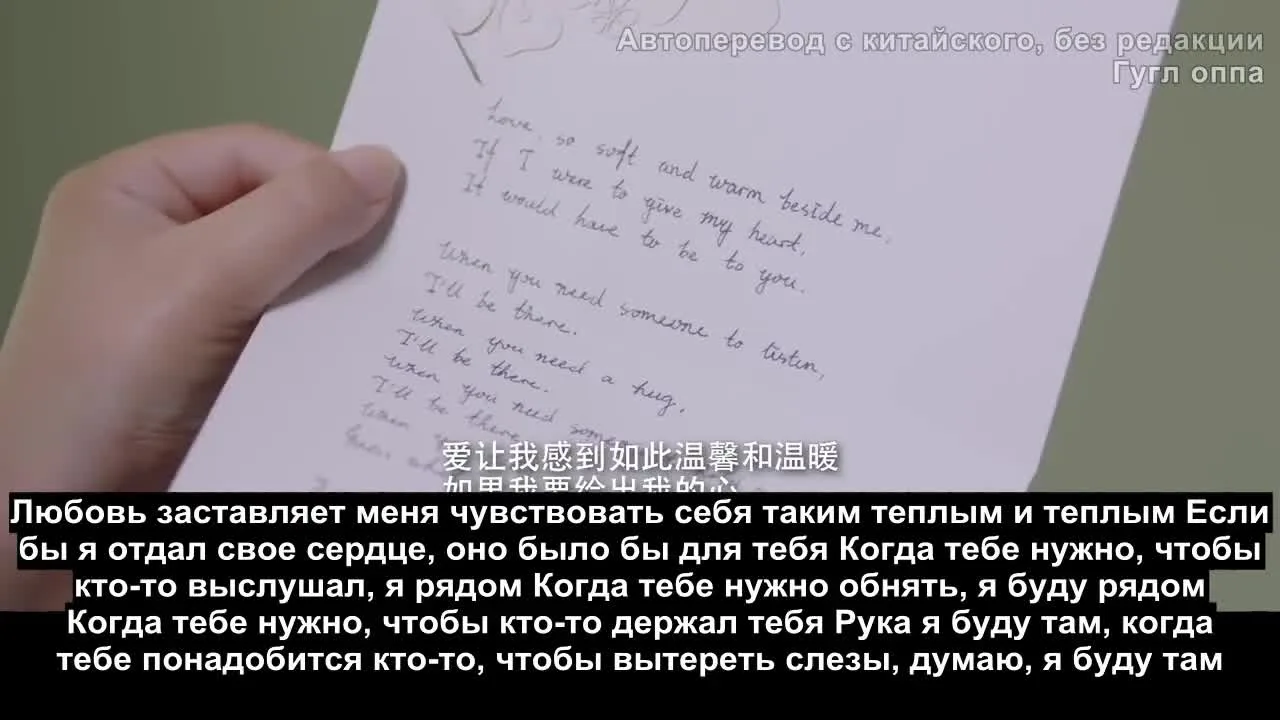 Автоперевод с китайского, без редакции
Гугл оппа
Love, so soft and warm beside me,
If I were to give my heart,
It would have to be to you.
When you need someone to listen,
I'll be there.
When you need a hug,
I'll be there.
When you need
I'll be there
When
爱让我感到如此温馨和温暖
如果我要给出我的心
Любовь заставляет меня чувствовать себя таким теплым и теплым Если
бы я отдал свое сердце, оно было бы для тебя Когда тебе нужно, чтобы
кто-то выслушал, я рядом Когда тебе нужно обнять, я буду рядом
Когда тебе нужно, чтобы кто-то держал тебя Рука я буду там, когда
тебе понадобится кто-то, чтобы вытереть слезы, думаю, я буду там